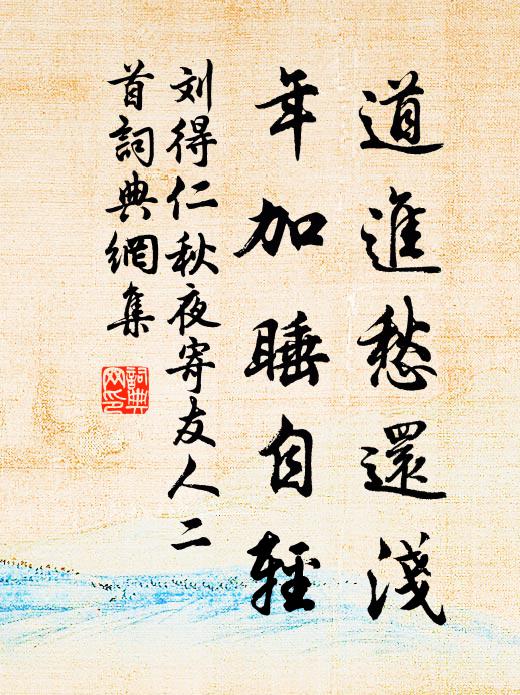 道進愁還淺
年加睡自輕
刘得仁秋夜寄友人二
首詞典網集
詞典
网印